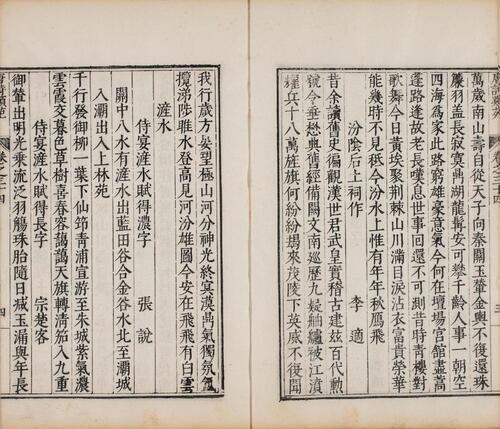 萬歲南山壽自從天子向秦關玉輦金輿不復還珠
簾羽蓋長寂寞鼎湖龍髯安可攀千齡人事一朝空
四海為家此路窮雄豪意氣今何在壇場宮館盡蒿
蓬路逢故老長嘆息世事回還不可測昔時青樓對
歌舞今日黃埃聚荊棘山川滿目淚沾衣富貴榮華
能幾時不見秪今汾水上惟有年年秋鴈飛
汾陰后土祠作 李適
昔余讀舊史徧觀漢世君武皇實稽古建玆百代勲
號令垂懋典舊經備闕文南巡歷九嶷舳艫被江濆
耀兵十八萬旌旗何紛紛朅來茂陵下英聲不復聞
我行歲方晏望極山河分神光終冥漠鼎氣獨氛氲
攬涕陟睢水登高見河汾雄圖今安在飛飛有白雲
滻水
侍宴滻水賦得濃字 張說
關中八水有滻水出藍田谷合金谷水北至灞城
入灞出入上林苑
千行發御柳一葉下仙筇青浦宣游至朱城紫氣濃
雲霞交暮色草樹喜春容藹藹天旗轉清笳入九重
侍宴滻水賦得長字 宗楚客
御輦出明光乘流泛羽觴珠胎隨日減玉漏與年長
四